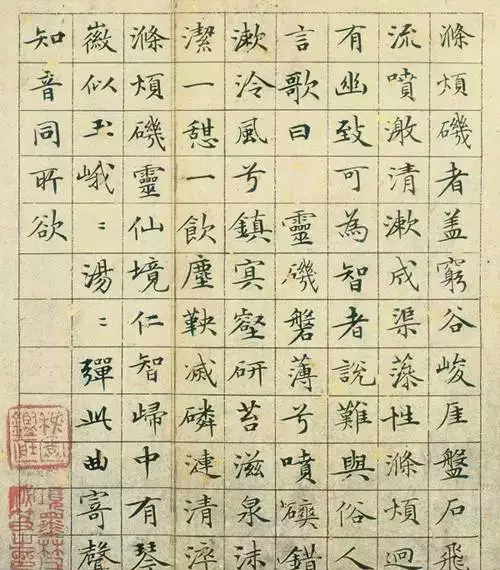 滌煩磯者盖窮谷峻厓盤石飛
流噴激清漱成渠藻性滌煩迴
有幽致可為智者說難與俗人
言歌曰 靈磯磐薄兮噴錯
漱泠風兮鎮冥壑研苔滋泉沫
潔一憩一飲塵鞅滅磷漣清滓
滌煩磯靈仙境仁智歸中有琴
徽似玉峨〻湯〻彈此曲寄聲
知音同所欲